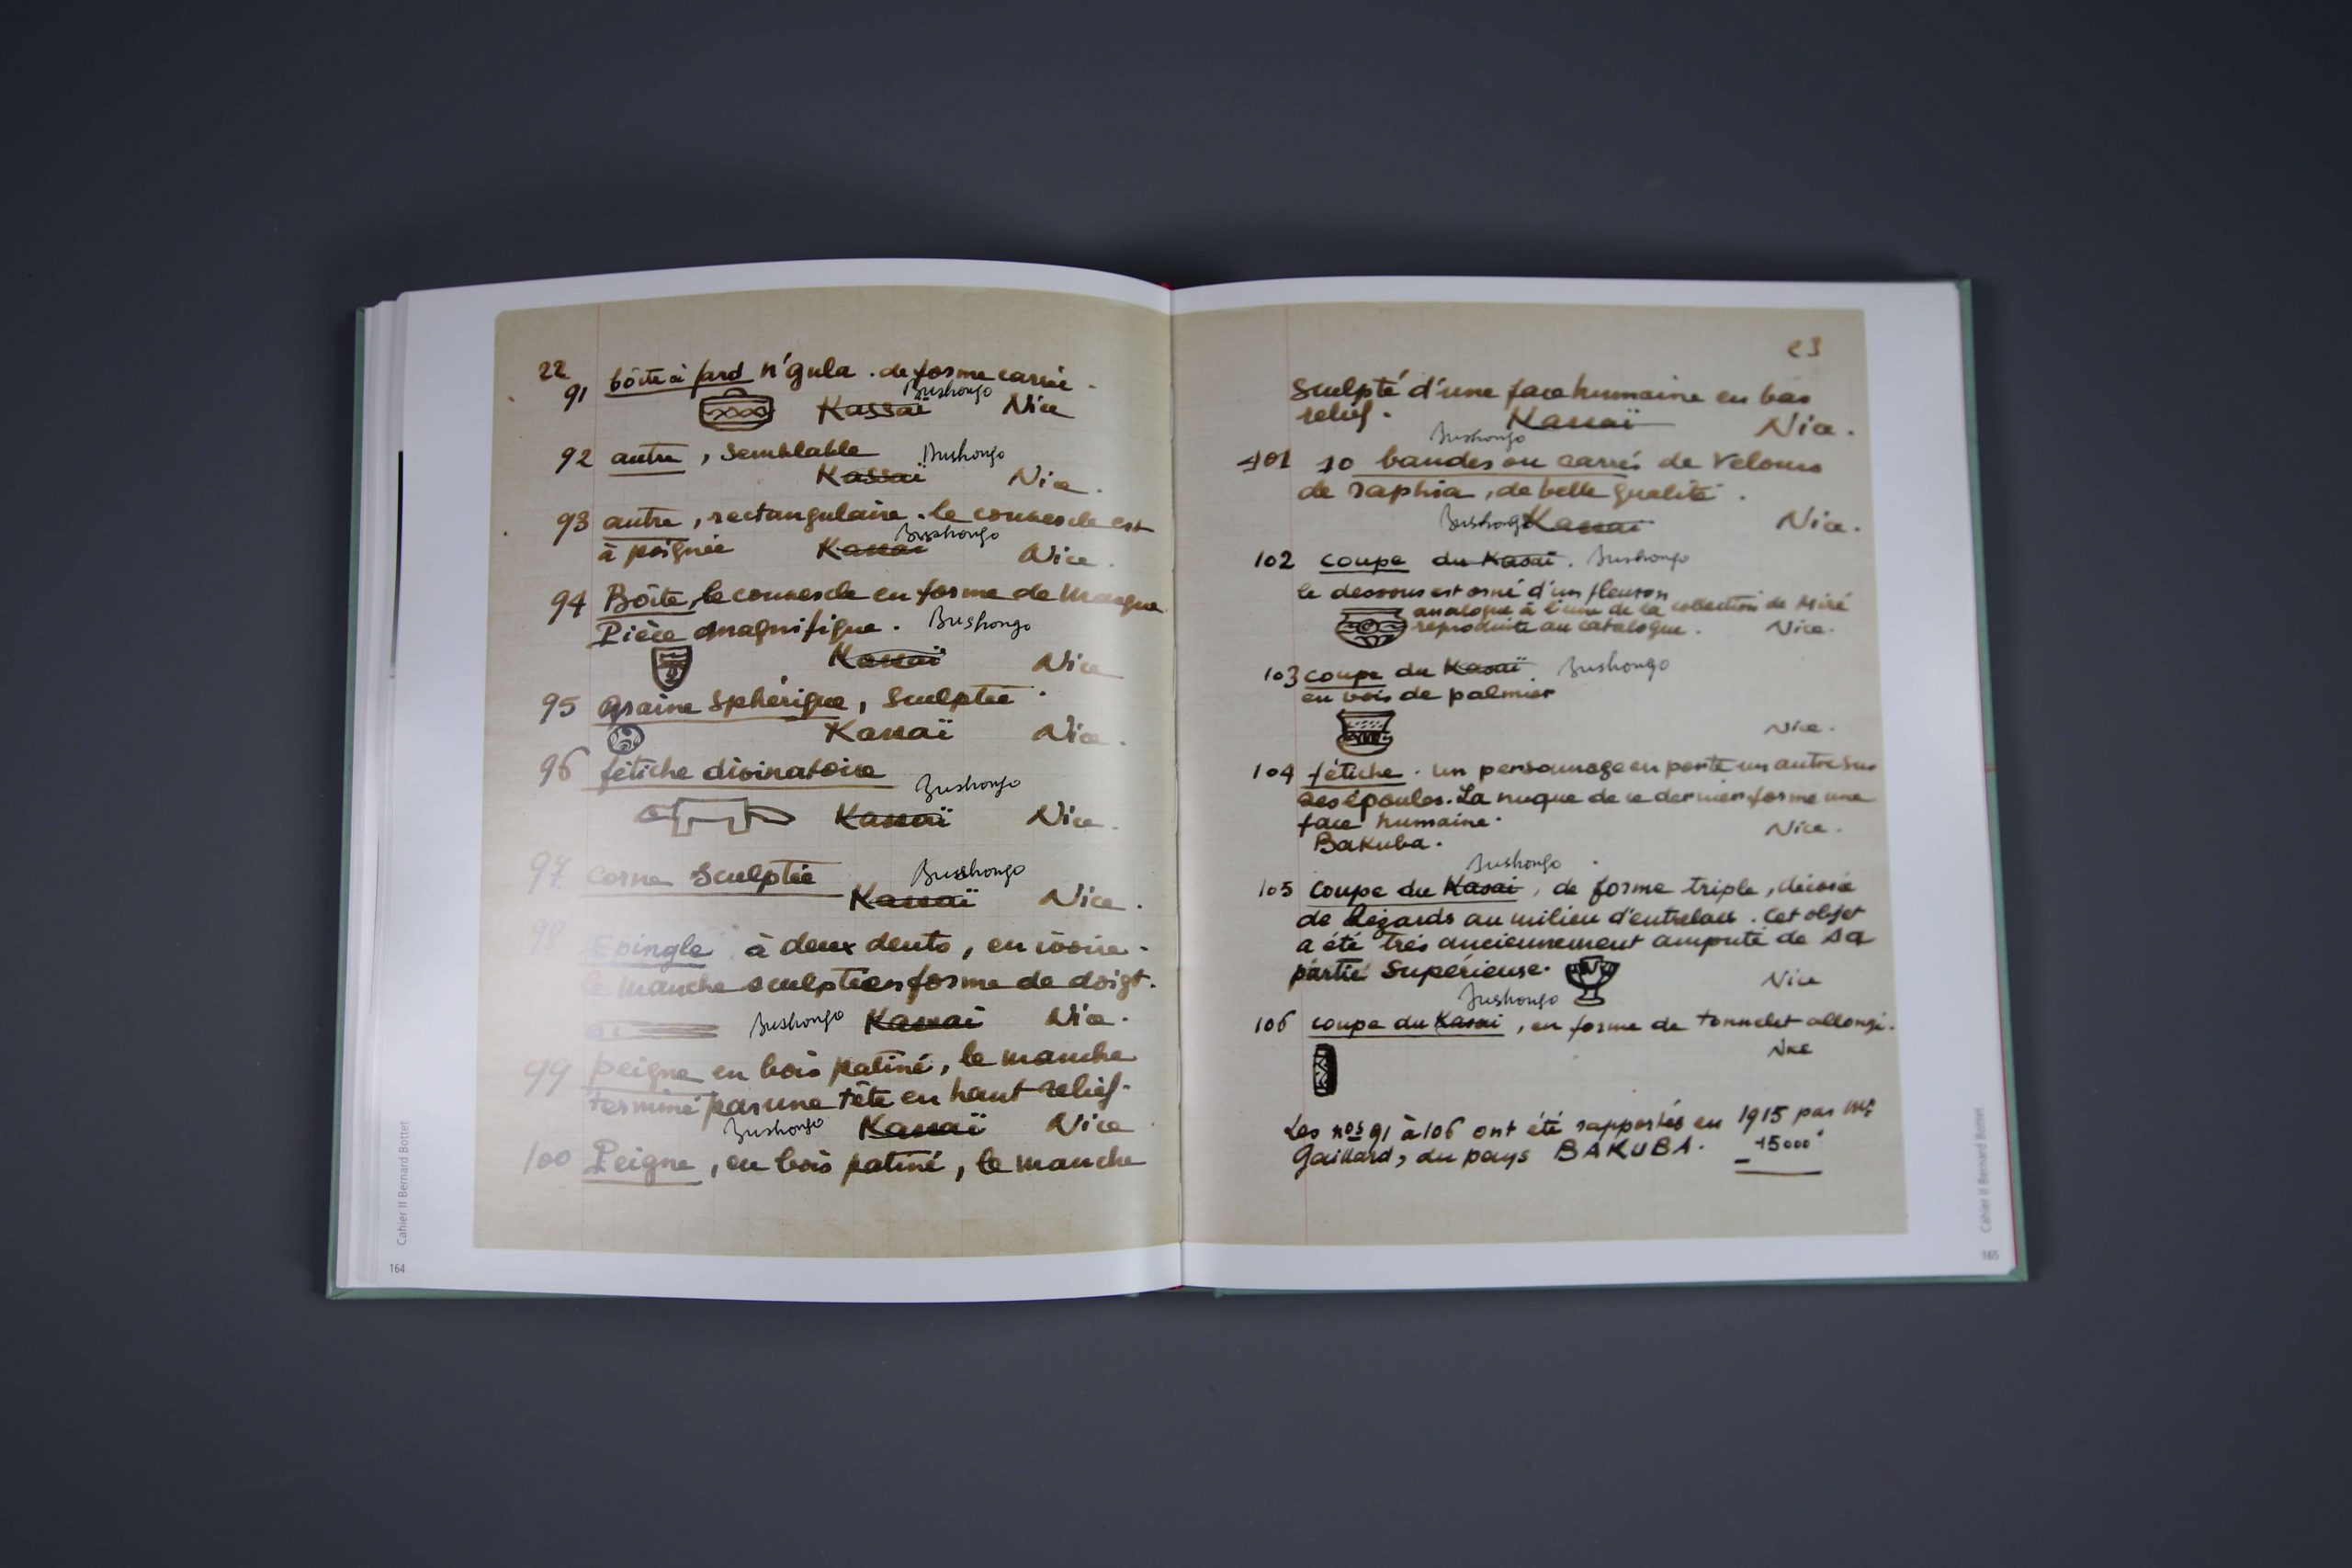 22
91 bôite à fard n'gula . de forme carrée .
Bushongo
Kassaï Nice
92 autre , semblable Bushongo
Kassaï Nice .
93 autre , rectangulaire . le couvercle est
Bushongo
à poignée Kassai Nice .
94 Bôite, le couvercle en forme de masque
Pièce magnifique . Bushongo
Kassaï Nice
95 graine sphérique , sculptée .
Kassaï Nice .
96 fétiche divinatoire
Bushongo
Kassaï Nice .
97 corne sculptée Bushongo
Kassaï Nice .
98 Epingle à deux dents , en ivoire -
le manche sculpté en forme de doigt .
Bushongo Kassai Nice .
99 peigne en bois patiné , le manche
terminé par une tête en haut relief .
Bushongo Kassaï Nice .
100 Peigne , en bois patiné , le manche
Cahier II Bernard Bottet
164
23
Sculpté d'une face humaine en bas
relief . Kassaï Nice .
Bushongo
101 10 bandes ou carrés de velours
de raphia , de belle qualité .
Bushongo Kassaï Nice .
102 coupe du Kasaï . Bushongo
le dessous est orné d'un fleuron
analogue à l'une de la collection de Miré
reproduite au catalogue . Nice .
103 coupe du Kasaï . Bushongo
en bois de palmier
Nice .
104 fétiche . un personnage en porte un autre sur
ses épaules . La nuque de ce dernier forme une
face humaine . Nice .
Bakuba .
Bushongo
105 coupe du Kasai , de forme triple , décorée
de lézards au milieu d'entrelacs . Cet objet
a été très anciennement amputé de sa
partie Supérieure . Nice
Bushongo
106 coupe du Kasai , en forme de tonnelet allongé .
Nice
Les nos 91 à 106 ont été rapportés en 1915 par Mr
Gaillard , du pays BAKUBA . - 15000
Cahier II Bernard Bottet
165